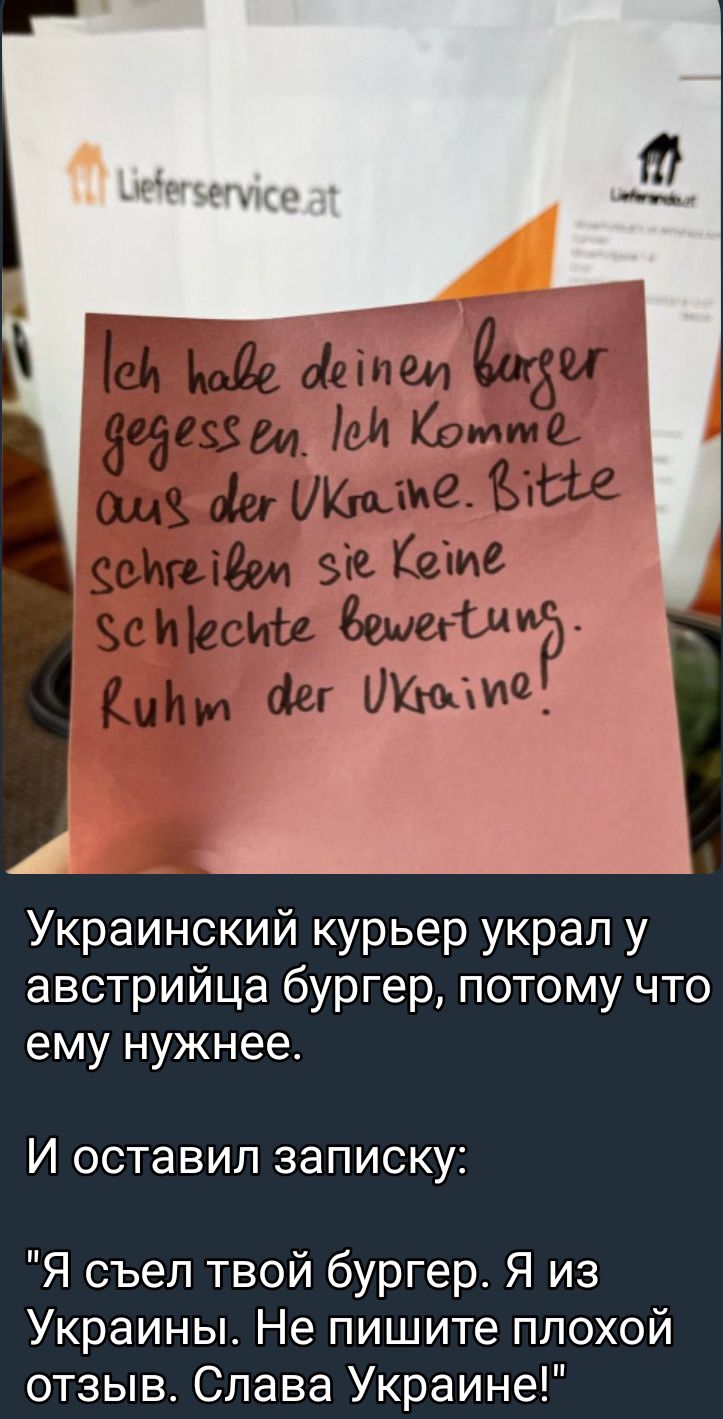 Lieferservice.at
Lieferando.at
Ich habe deinen burger
gegessen. Ich Komme
aus der UKraine. Bitte
schreiben sie Keine
schlechte bewertung.
Ruhm der UKraine!
Украинский курьер украл у
австрийца бургер, потому что
ему нужнее.
И оставил записку:
"Я съел твой бургер. Я из
Украины. Не пишите плохой
отзыв. Слава Украине!"